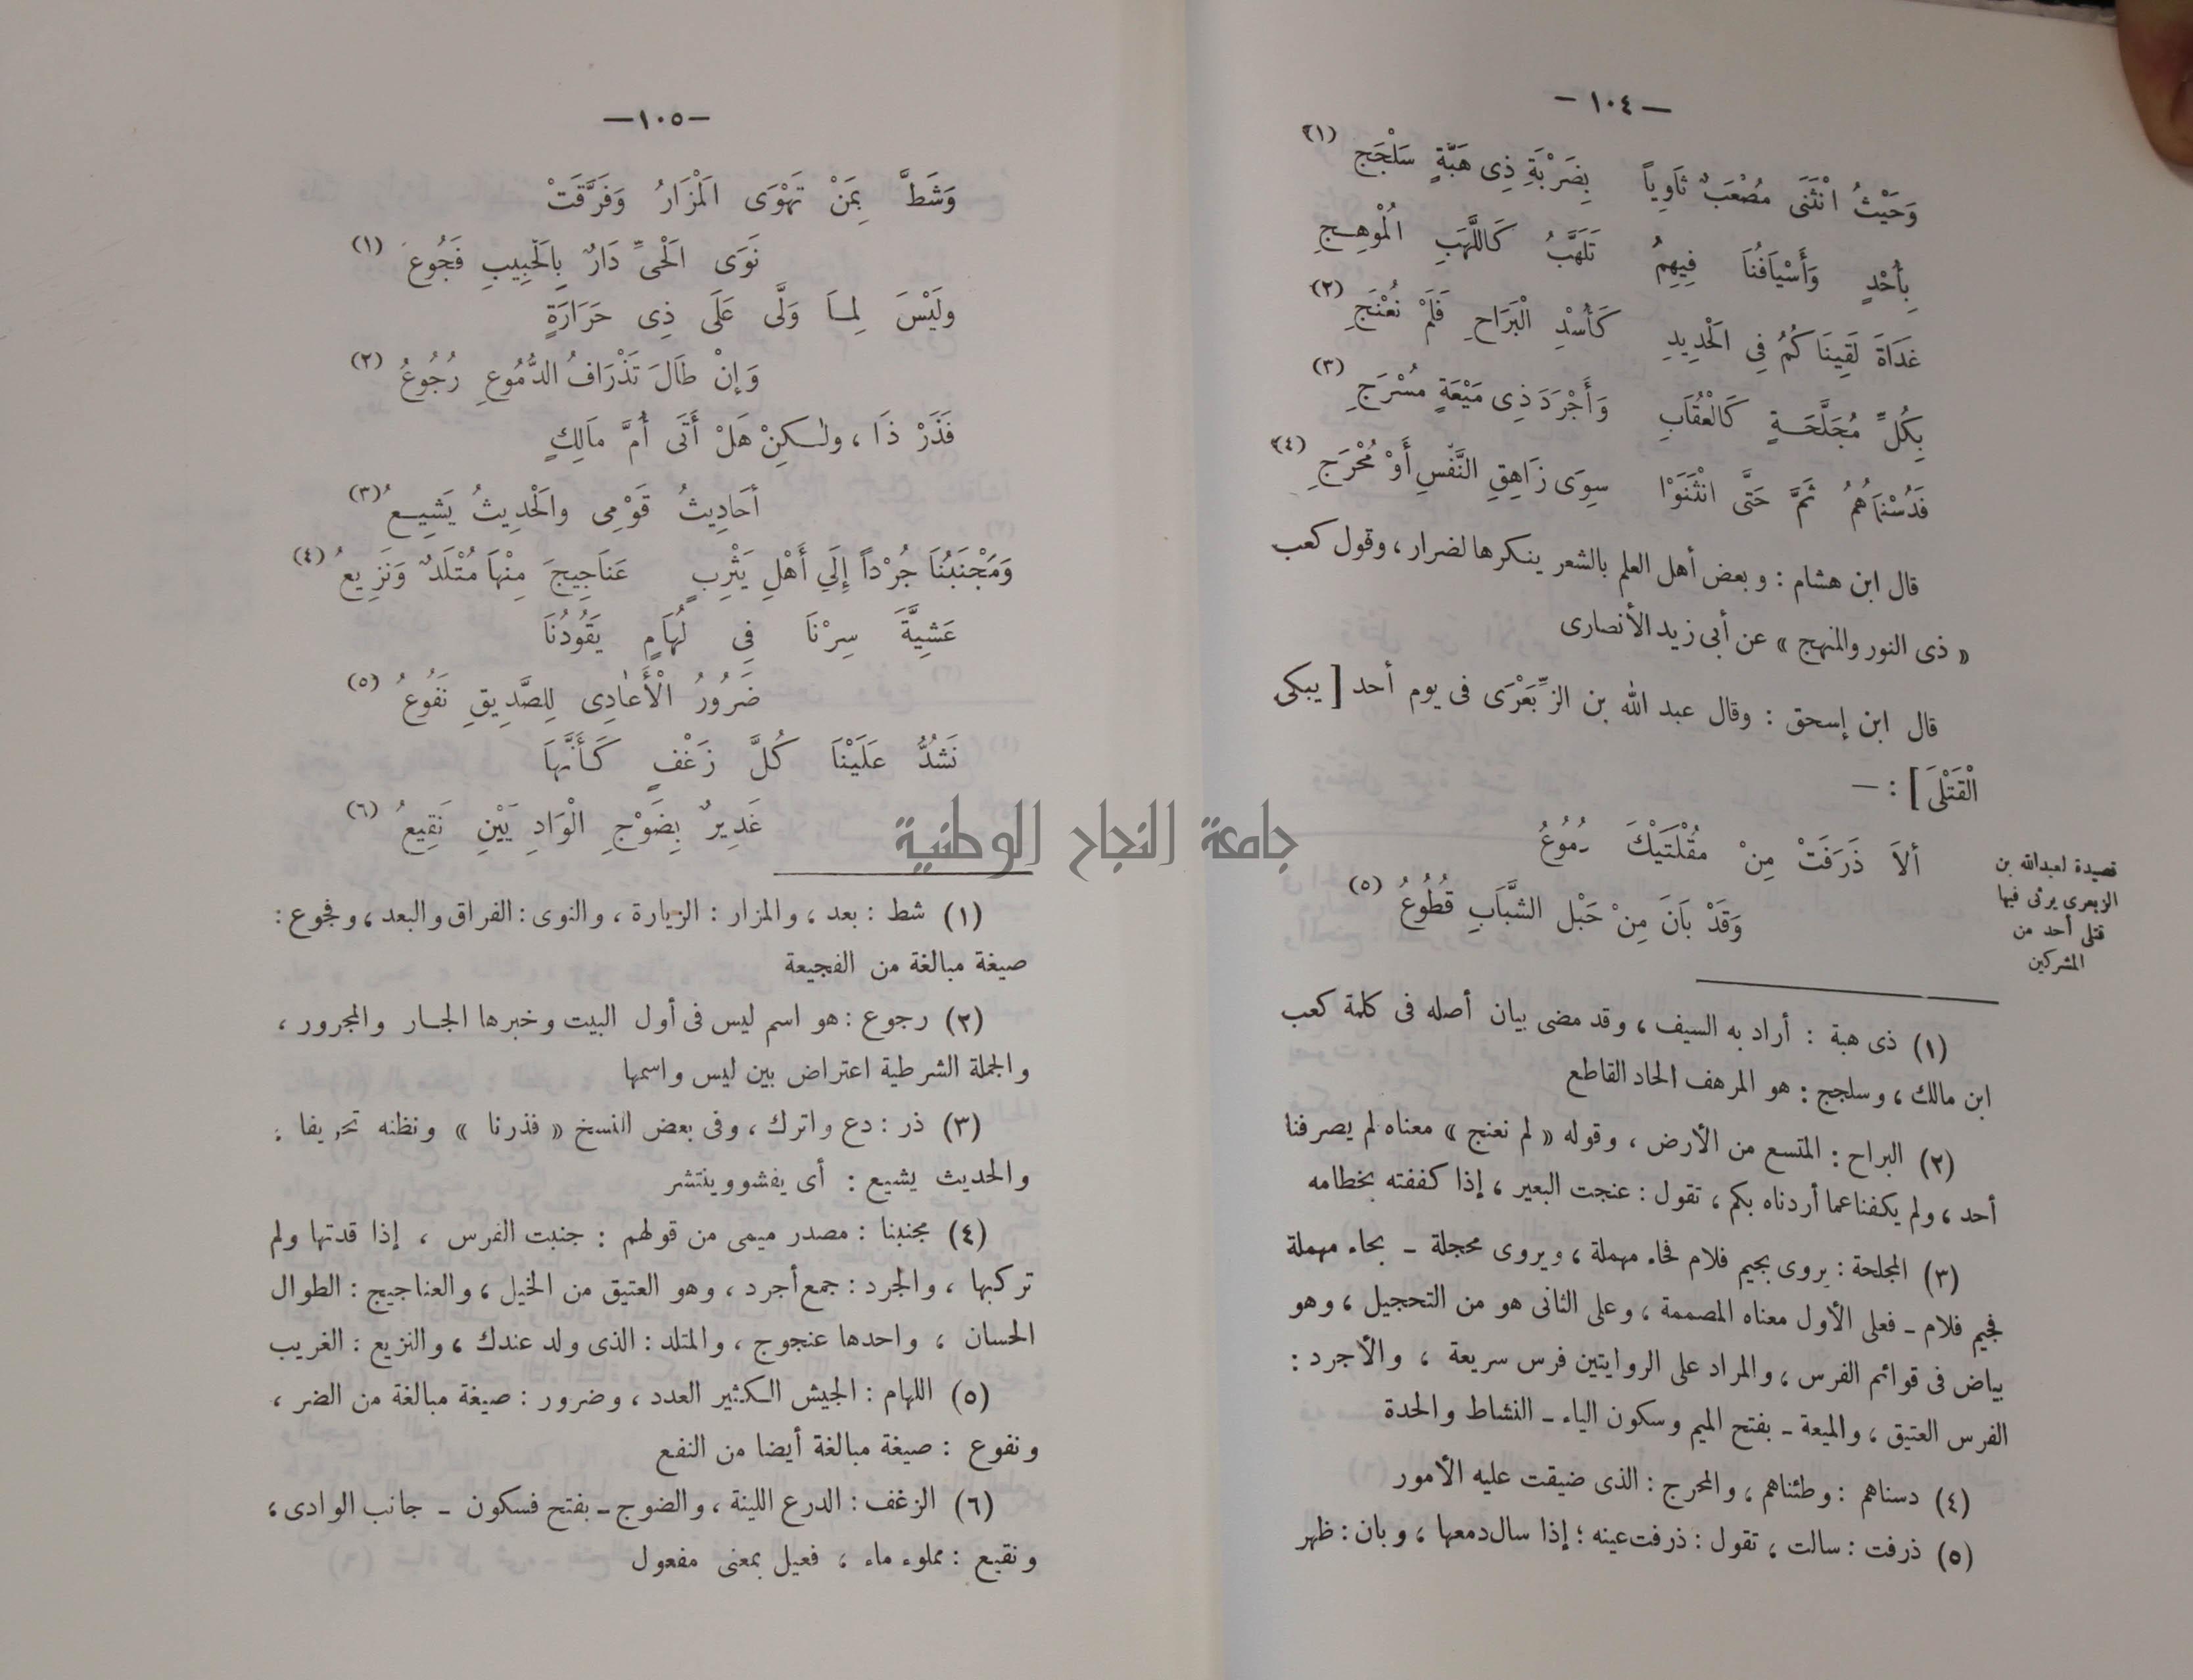 — ١٠٤ —
وَحَيْثُ انْثَنَى مُصْعَبٌ ثَاوِياً بِضَرْبَةِ ذِى هَبَّةٍ سَلْجَجِ (١)
بِأُحْدٍ وَأَسْيَافُنَا فِيهِمُ تَلَهَّبُ كَاللَّهَبِ الْمُوْهِجِ
غَدَاةَ لَقِينَاكُمُ فِى الْحَدِيدِ كَأُسْدِ الْبَرَاحِ فَلَمْ نُعْنَجِ (٢)
بِكُلِّ مُجَلَّحَةٍ كَالْعُقَابِ وَأَجْرَدَ ذِى مَيْعَةٍ مُسْرَجِ (٣)
فَدُسْنَاهُمُ ثَمَّ حَتَّى انْثَنَوْا سِوَى زَاهِقِ النَّفْسِ أَوْ مُحْرَجِ (٤)
قال ابن هشام : وبعض أهل العلم بالشعر ينكرها لضرار ، وقول كعب
« ذى النور والمنهج » عن أبى زيد الأنصارى
قال ابن إسحق : وقال عبد الله بن الزِّبَعْرَى فى يوم أحد [ يبكى
الْقَتْلَى ] : —
ألاَ ذَرَفَتْ مِنْ مُقْلَتَيْكَ دُمُوعُ
وَقَدْ بَانَ مِنْ حَبْلِ الشَّبَابِ قُطُوعُ (٥)
قصيدة لعبدالله بن
الزبعرى يرثى فيها
قتلى أحد من
المشركين
(١) ذى هبة : أراد به السيف ، وقد مضى بيان أصله فى كلمة كعب
ابن مالك ، وسلجج : هو المرهف الحاد القاطع
(٢) البراح : المتسع من الأرض ، وقوله « لم نعنج » معناه لم يصرفنا
أحد ، ولم يكفنا عما أردناه بكم ، تقول : عنجت البعير ، إذا كففته بخطامه
(٣) المجلحة : يروى بجيم فلام فحاء مهملة ، ويروى محجلة - بحاء مهملة
فجيم فلام - فعلى الأول معناه المصممة ، وعلى الثانى هو من التحجيل ، وهو
بياض فى قوائم الفرس ، والمراد على الروايتين فرس سريعة ، والأجرد :
الفرس العتيق ، والميعة - بفتح الميم وسكون الياء - النشاط والحدة
(٤) دسناهم : وطئناهم ، والمحرج : الذى ضيقت عليه الأمور
(٥) ذرفت : سالت ، تقول : ذرفت عينه ؛ إذا سال دمعها ، وبان : ظهر
— ١٠٥ —
وَشَطَّ بِمَنْ تَهْوَى الْمَزَارُ وَفَرَّقَتْ
نَوَى الْحَىِّ دَارٌ بِالْحَبِيبِ فَجُوعُ (١)
ولَيْسَ لِمَا وَلَّى عَلَى ذِى حَرَارَةٍ
وَإنْ طَالَ تَذْرَافُ الدُّمُوعِ رُجُوعُ (٢)
فَذَرْ ذَا ، ولكِنْ هَلْ أَتَى أُمَّ مَالِكٍ
أحَادِيثُ قَوْمِى والْحَدِيثُ يَشِيعُ (٣)
وَمَجْنَبُنَا جُرْداً إِلَي أَهْلِ يَثْرِبٍ عَنَاجِيجَ مِنْهَا مُتْلَدٌ وَنَزِيعُ (٤)
عَشِيَّةَ سِرْنَا فِى لُهَامٍ يَقُودُنَا
ضَرُورُ الْأَعَادِى لِلصَّدِيقِ نَفُوعُ (٥)
نَشُدُّ عَلَيْنَا كُلَّ زَغْفٍ كَأَنَّهَا
غَدِيرٌ بِضَوْجِ الْوَادِ يَيْنِ نَقِيعُ (٦)
جامعة النجاح الوطنية
(١) شط : بعد ، والمزار : الزيارة ، والنوى : الفراق والبعد ، وفجوع :
صيغة مبالغة من الفجيعة
(٢) رجوع : هو اسم ليس فى أول البيت وخبرها الجار والمجرور ،
والجملة الشرطية اعتراض بين ليس واسمها
(٣) ذر : دع واترك ، وفى بعض النسخ « فذرنا » ونظنه تحريفا :
والحديث يشيع : أى يفشو وينتشر
(٤) مجنبنا : مصدر ميمى من قولهم : جنبت الفرس ، إذا قدتها ولم
تركبها ، والجرد : جمع أجرد ، وهو العتيق من الخيل ، والعناجيج : الطوال
الحسان ، واحدها عنجوج ، والمتلد : الذى ولد عندك ، والنزيع : الغريب
(٥) اللهام : الجيش الكثير العدد ، وضرور : صيغة مبالغة من الضر ،
ونفوع : صيغة مبالغة أيضا من النفع
(٦) الزغف : الدرع اللينة ، والضوج - بفتح فسكون - جانب الوادى ،
ونقيع : مملوء ماء ، فعيل بمعنى مفعول